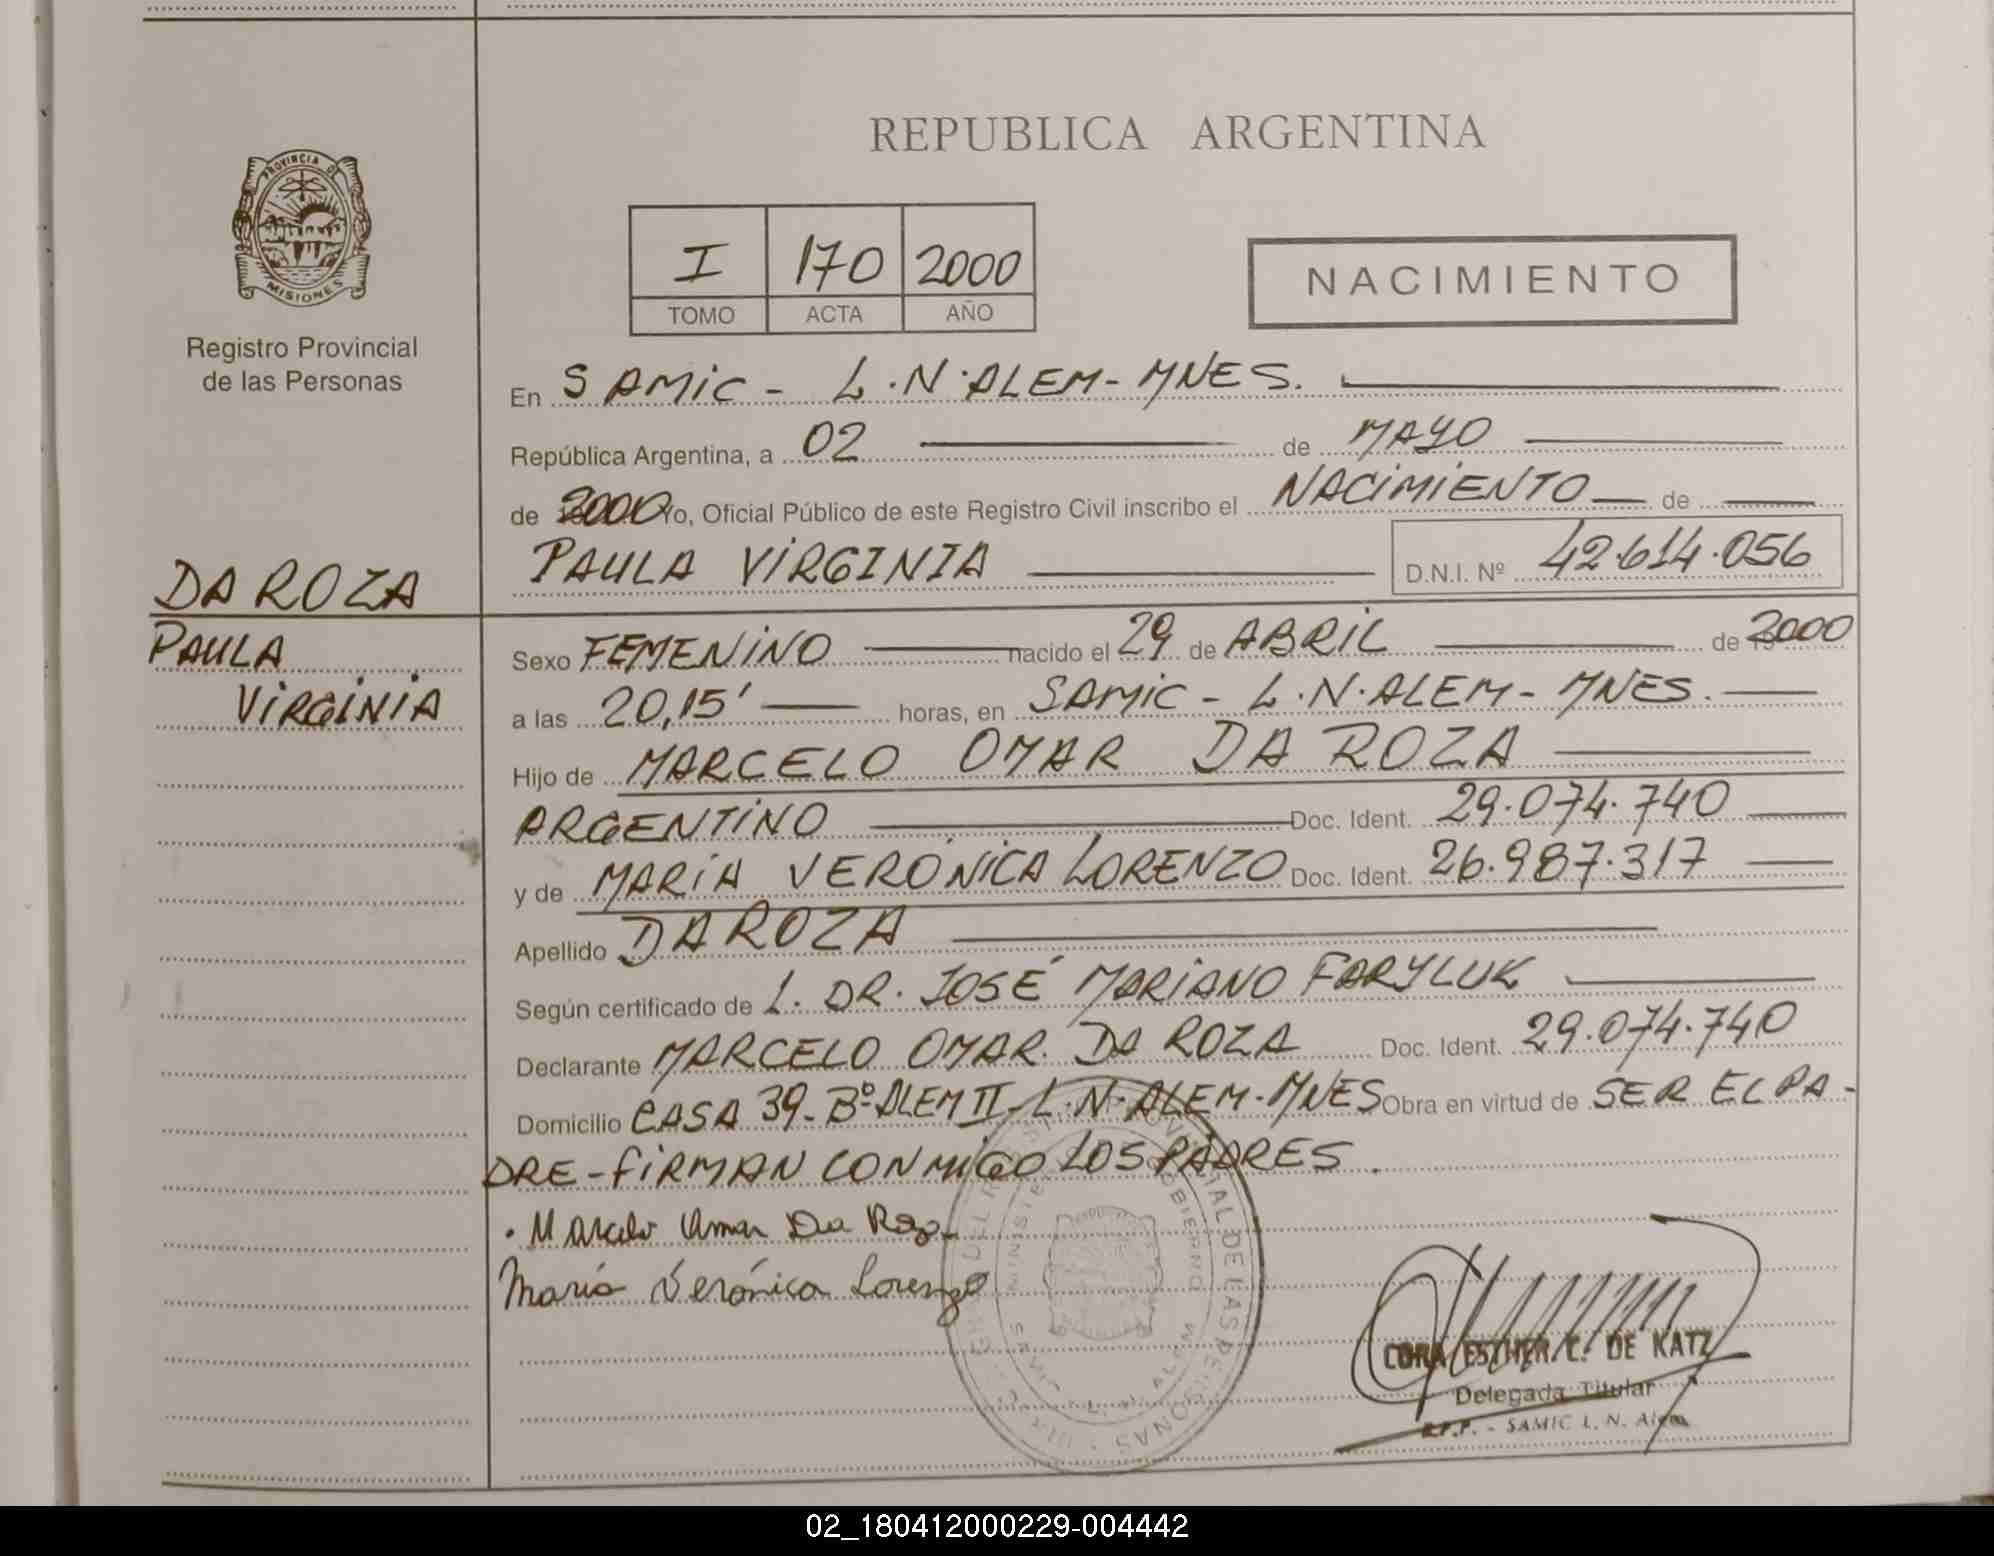 REPUBLICA ARGENTINA
PROVINCIA DE
MISIONES
Registro Provincial
de las Personas
I 170 2000
TOMO ACTA AÑO
NACIMIENTO
En SAMIC - L.N. ALEM - MNES.
República Argentina, a 02 de MAYO
de 2000 Yo, Oficial Público de este Registro Civil inscribo el NACIMIENTO de
PAULA VIRGINIA D.N.I. Nº 42.614.056
DA ROZA
PAULA
VIRGINIA
Sexo FEMENINO nacido el 29 de ABRIL de 2000
a las 20,15' horas, en SAMIC - L.N. ALEM - MNES.
Hijo de MARCELO OMAR DA ROZA
ARGENTINO Doc. Ident. 29.074.740
y de MARÍA VERÓNICA LORENZO Doc. Ident. 26.987.317
Apellido DA ROZA
Según certificado de L. DR. JOSÉ MARIANO FARYLUK
Declarante MARCELO OMAR DA ROZA Doc. Ident. 29.074.740
Domicilio CASA 39 - Bº ALEM II - L.N. ALEM - MNES Obra en virtud de SER EL PA-
DRE - FIRMAN CONMIGO LOS PADRES.
Marcelo Omar Da Roza
María Verónica Lorenzo
CORA ESTHER C. DE KATZ
Delegada Titular
R.P.P. - SAMIC L. N. Alem
02_180412000229-004442